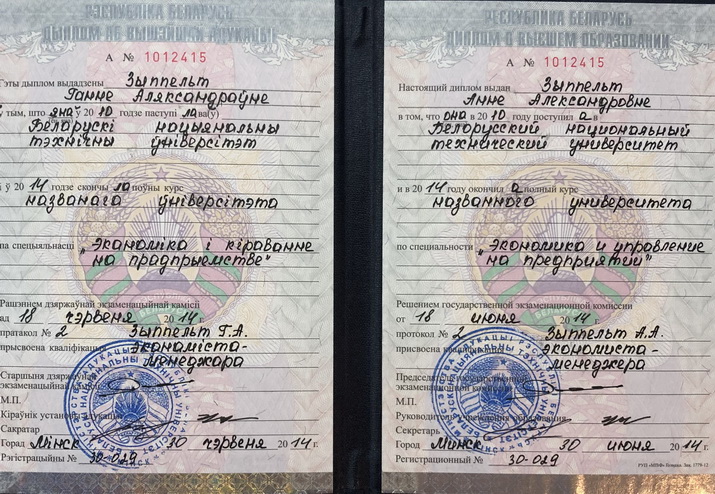 РЭСПУБЛІКА БЕЛАРУСЬ
ДЫПЛОМ АБ ВЫШЭЙШАЙ АДУКАЦЫІ
А № 1012415
Гэты дыплом выдадзены Зыппельт
Ганне Аляксандраўне
у тым, што яна ў 2010 годзе паступіла ва(у)
Беларускі нацыянальны
тэхнічны ўніверсітэт
і ў 2014 годзе скончыла поўны курс
названага ўніверсітэта
па спецыяльнасці „Эканоміка і кіраванне
на прадпрыемстве"
Рашэннем дзяржаўнай экзаменацыйнай камісіі
ад 18 чэрвеня 2014 г.
пратакол № 2 Зыппельт Г.А.
прысвоена кваліфікацыя эканаміста-
менеджэра
Старшыня дзяржаўнай
экзаменацыйнай камісіі
М.П.
Кіраўнік установы адукацыі
Сакратар
Горад Мінск 30 чэрвеня 2014 г.
Рэгістрацыйны № 30-029
РЕСПУБЛИКА БЕЛАРУСЬ
ДИПЛОМ О ВЫСШЕМ ОБРАЗОВАНИИ
А № 1012415
Настоящий диплом выдан Зыппельт
Анне Александровне
в том, что она в 2010 году поступила в
Белорусский национальный
технический университет
и в 2014 году окончила полный курс
названного университета
по специальности „Экономика и управление
на предприятии"
Решением государственной экзаменационной комиссии
от 18 июня 2014 г.
протокол № 2 Зыппельт А.А.
присвоена квалификация экономиста-
менеджера
Председатель государственной
экзаменационной комиссии
М.П.
Руководитель учреждения образования
Секретарь
Город Минск 30 июня 2014 г.
Регистрационный № 30-029